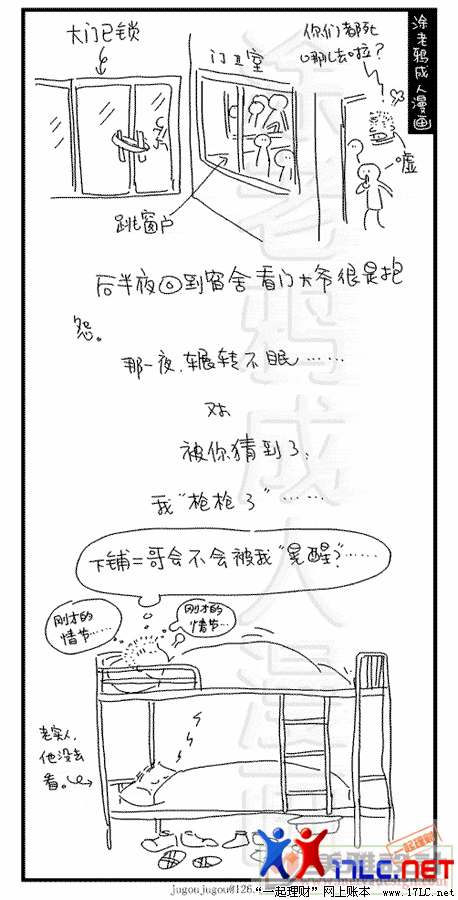 涂老鸦成人漫画
大门已锁
门卫室
你们都死
哪儿去啦？
嘘
跳窗户
后半夜回到宿舍看门大爷很是抱
怨。
那一夜，辗转不眠……
对
被你猜到了，
我“枪枪了”……
下铺二哥会不会被我“晃醒？”……
刚才的
情节……
刚才的
情节…
老实人，
他没去
看。
一起理财
17LC.net
jugoujugou@126.
“一起理财”网上账本 www.17LC.net